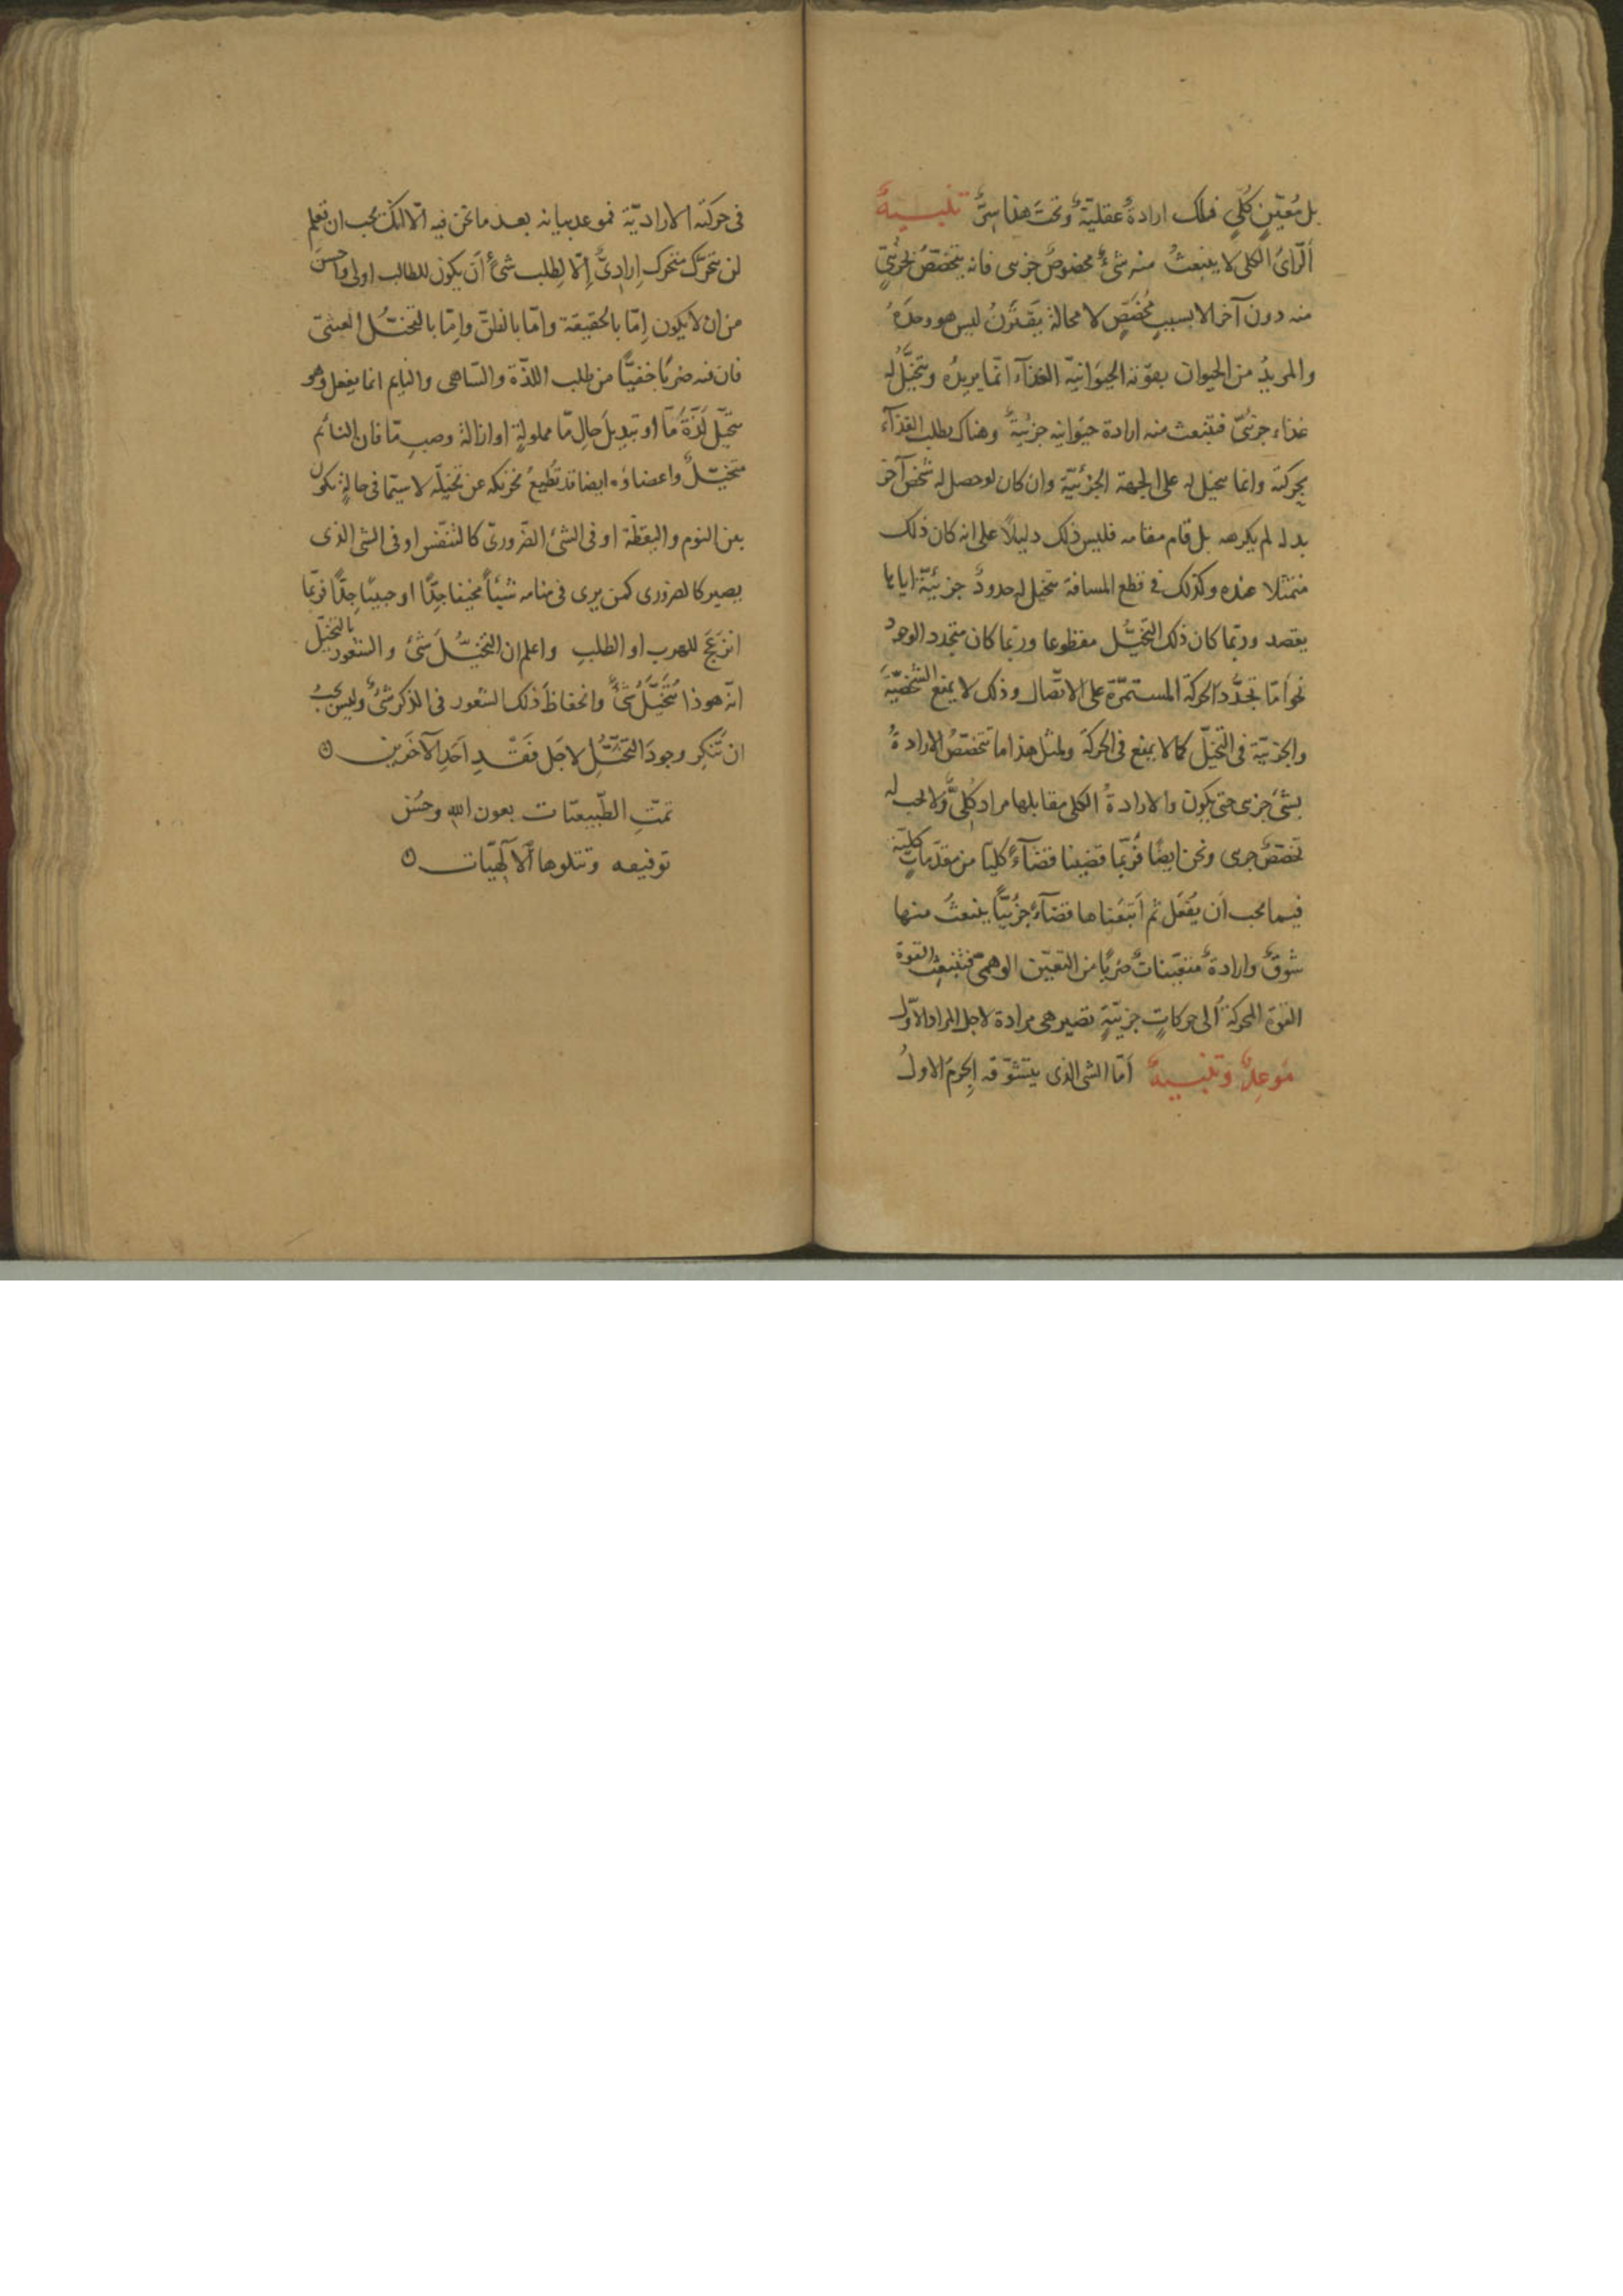 بل مُعيّنٍ كُلّيٍ فتلك ارادةٌ عقليّةٌ وتحتَ هذا سِرٌّ تنبيهٌ
الرّأىُ الكلى لا ينبعثُ منه شىءٌ مخصوصٌ جزىى فانه يتخصّصُ بجزئىٍّ
منه دون آخر الا بسببٍ مُخصّصٍ لا محالة يقترنُ ليس هو وحدَهُ
والمريدُ من الحيوان بقوّته الحيوَانيّة الغذآء انّما يريدُه ويتخيّلُ له
غذاء جزئىّ فتنبعث منه ارادة حيوانيه جزئيةٌ وهناك يطلب الغذآء
بحركته وانما يتخيل له على الجهة الجزئيّة وان كان لو حصل له شخصٌ آخر
بدله لم يكرهه بل قام مقامه فليس ذلك دليلاً على انه كان ذلك
متمثلا عنده وكذلك فى قطع المسافة يتخيل له حدودٌ جزئيّة اياها
يقصد وربّما كان ذلك التخيّل مقطوعا وربّما كان متجدد الوجود
نحو امّا تجدّد الحركة المستمرّة على الاتّصال وذلك لا يمنع الشخصيّة
والجزئيّة فى التخيّل كما لا يمنع فى الحركة ولمثل هذا ما تتخصّصُ الارادةُ
بشىءٍ جزىى حتى يكون والارادةُ الكلى مقابلها مراد كُلىٌّ ولا يجب له
تخصّصٌ جرىى ونحن ايضًا فرُبّما قضينا قضآءً كليّا من مقدّماتٍ كليّة
فيما يجب أن يُفعَل ثم أَتبَعْناها قضآءً جزئيًّا ينبعثُ منها
شوقٌ وارادةٌ متعيّنات ضربًا من التعيّن الوهمىّ فتنبعثُ القوة
القوة المحركة الى حركاتٍ جزئيّةٍ تصير هى مرادة لاجل المراد الاوّل
موعدٌ وتنبيهٌ أمّا الشى الذى يتشوّقه الجِرمُ الاولُ
فى حركته الاراديّة فموعد بيانه بعد ما نحن فيه الّا انّك يجب ان تعلم
لن يتحرّك متحرك إرادىٌّ إلّا لِطلب شىءٍ أن يكون للطالب اولى واحسنَ
من ان لا يكون إمّا بالحقيقة وامّا بالظنّ وإمّا بالتخيّل العبثىّ
فان فيه ضربًا خفيًّا من طلب اللذّة والسّاهى والنايم انما يفعل وهو
يتخيّل لَذّةً مّا او تبديلَ حالٍ مّا مملولةٍ او ازالة وصبٍ مّا فان النائم
متخيّلٌ واعضاؤه ايضا قد تطيعُ تحريكه عن تخيله لا سيّما فى حالةٍ تكون
بين النوم واليقظة او فى الشىء الضّرورىّ كالتنفّس او فى الشى الذى
يصير كالضرورى كمن يرى فى منامه شيئًا مخيفا جِدًّا او حبيبًا جِدًّا فربّما
انزعَجَ للهرب او الطلبِ واعلم ان التخيّلَ شىءٌ والشعور بالتخيّل
انّه هوذا مُتخيَّلٌ شىءٌ وانحفاظَ ذلك الشعور فى الذكر شىءٌ وليس يجبُ
ان تُنكِر وجودَ التخيّلِ لاجل فَقْدِ احَدِ الآخَرين ن
تمّتِ الطّبيعيّات بعون الله وحُسْن
توفيقه وتتلوها الآلٓهيّات ن